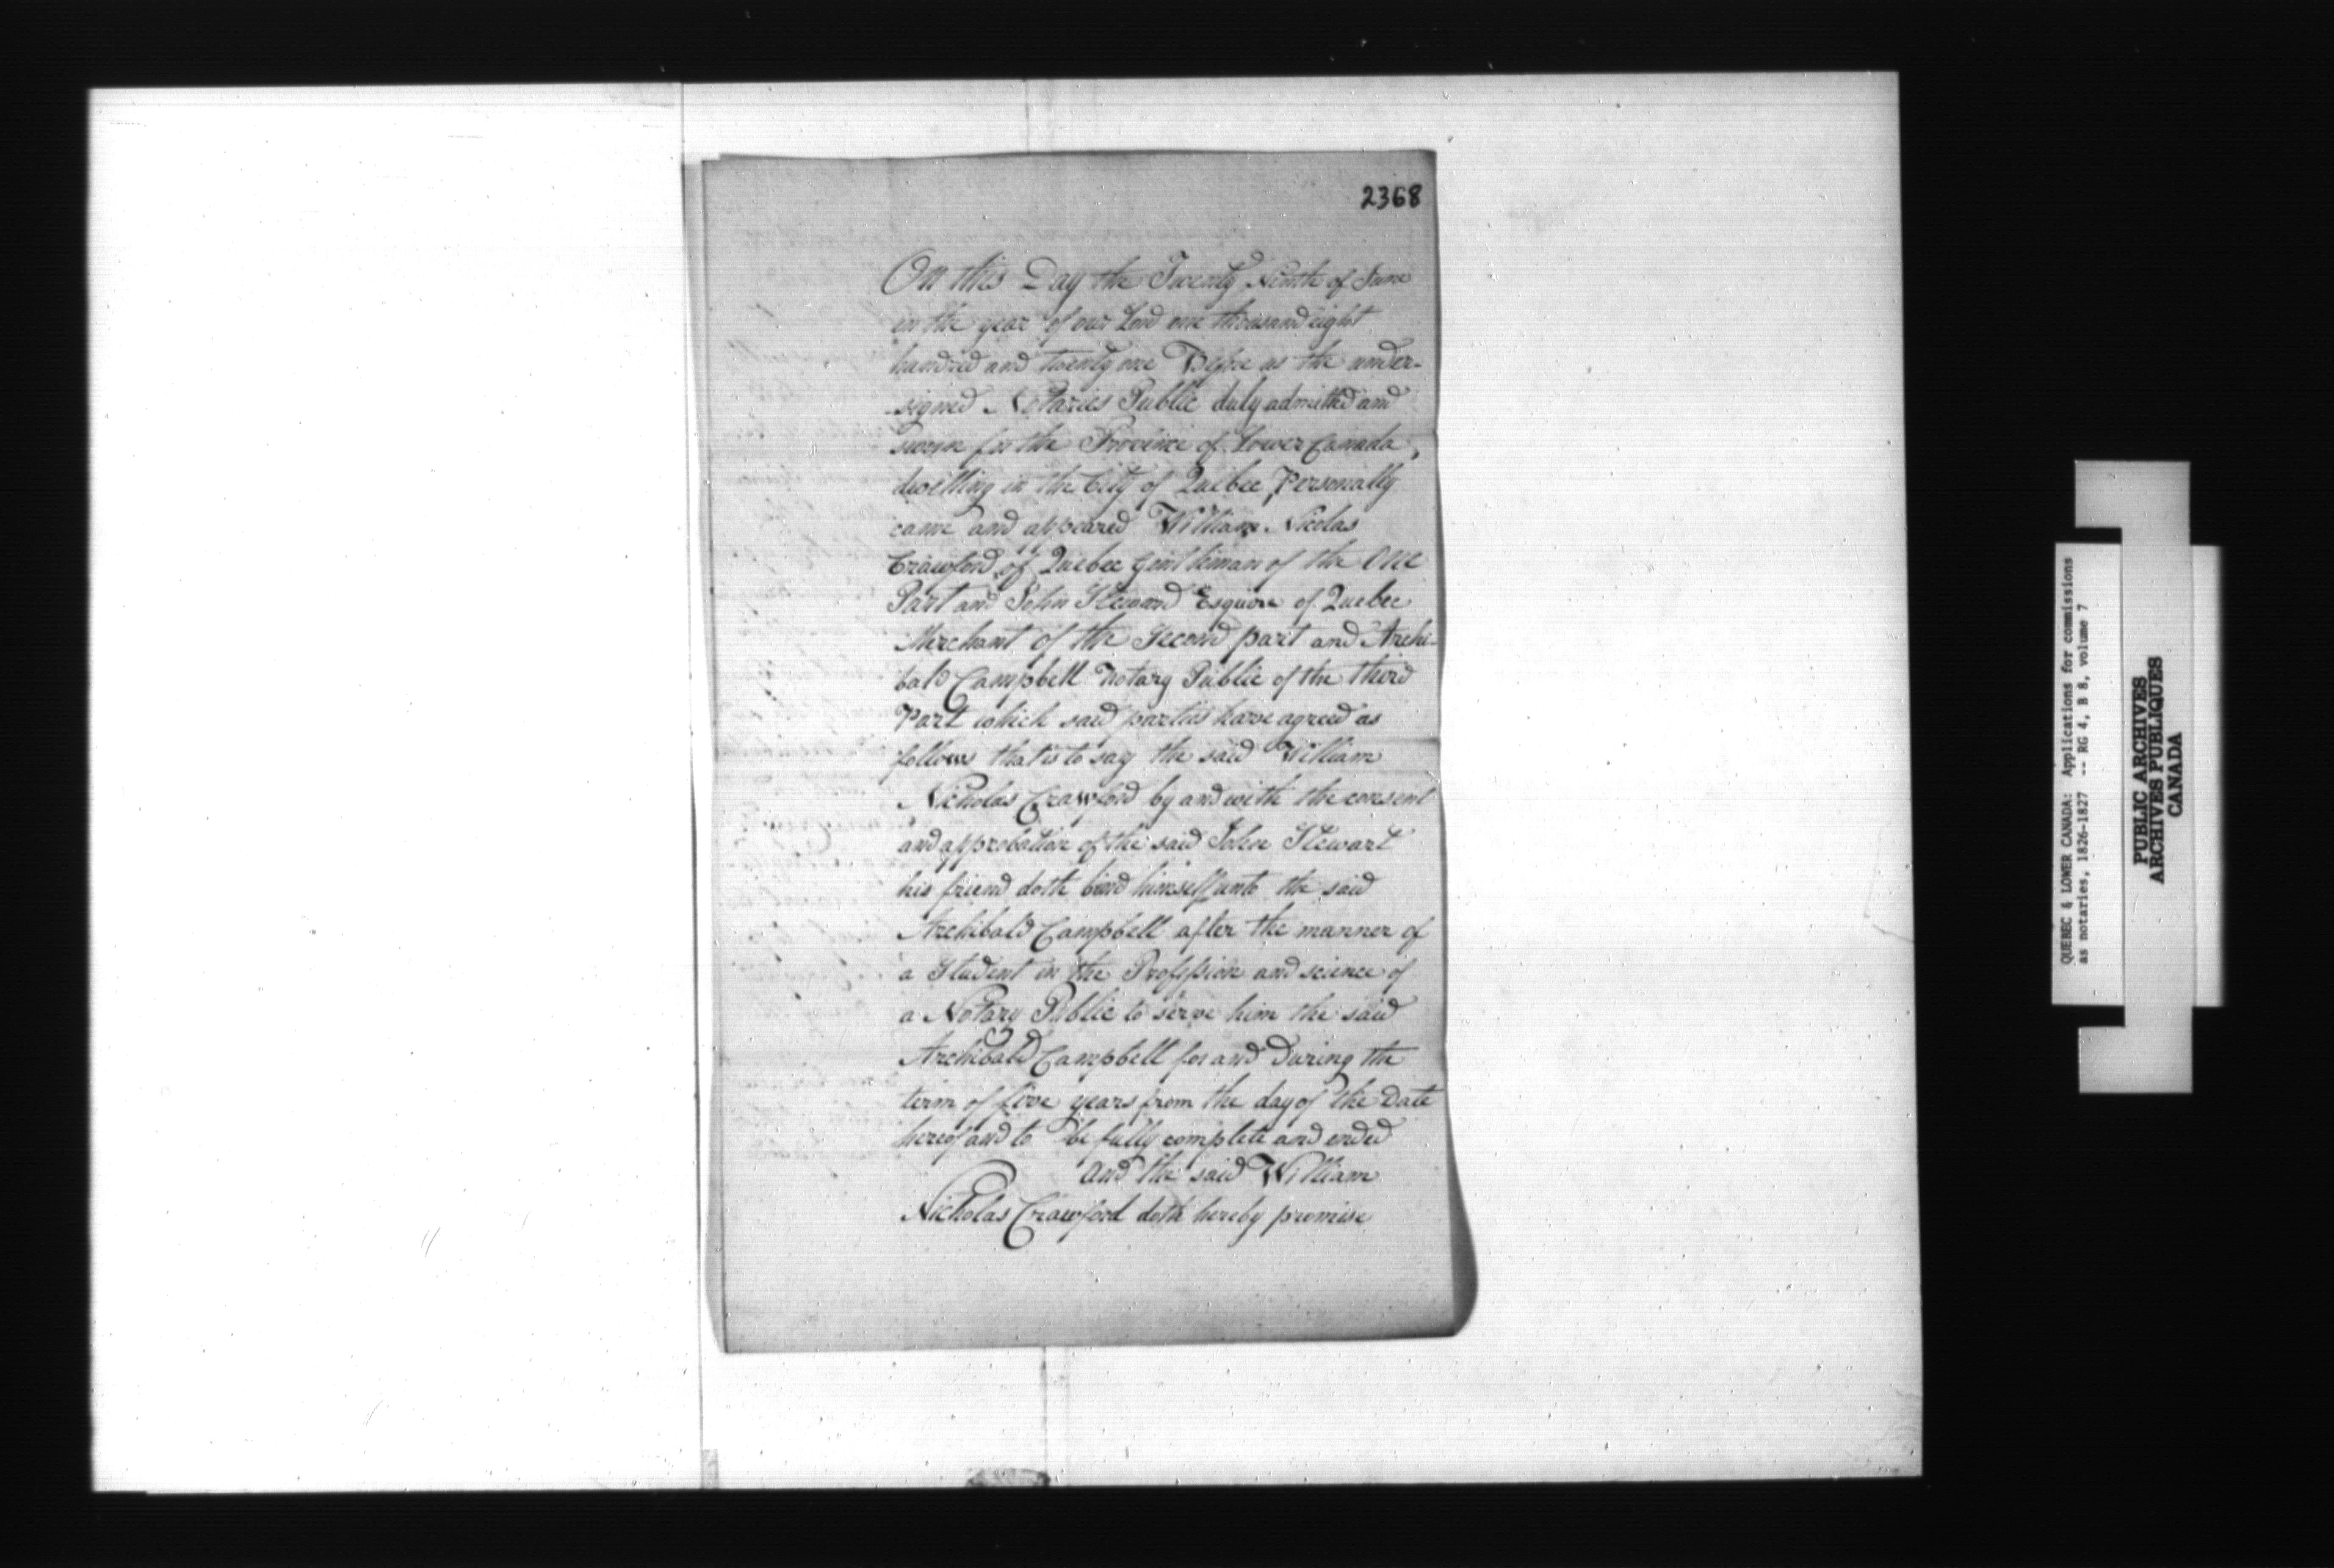 2368
On this Day the Twenty Ninth of June
in the year of our Lord one thousand eight
hundred and twenty one Before us the under-
signed Notaries Public duly admitted and
sworn for the Province of Lower Canada,
dwelling in the City of Quebec, Personally
came and appeared William Nicolas
Crawford, of Quebec Gentleman of the One
Part and John Steward Esquire of Quebec
Merchant of the Second part and Archi-
bald Campbell Notary Public of the third
Part which said parties have agreed as
follows that is to say the said William
Nicholas Crawford by and with the consent
and approbation of the said John Stewart
his friend doth bind himself unto the said
Archibald Campbell after the manner of
a Student in the Profession and science of
a Notary Public to serve him the said
Archibald Campbell for and During the
term of five years from the day of the Date
hereof and to be fully complete and ended
And the said William
Nicholas Crawford doth hereby promise
QUEBEC & LOWER CANADA: Applications for commissions
as notaries, 1826-1827 -- RG 4, B 8, volume 7
PUBLIC ARCHIVES
ARCHIVES PUBLIQUES
CANADA